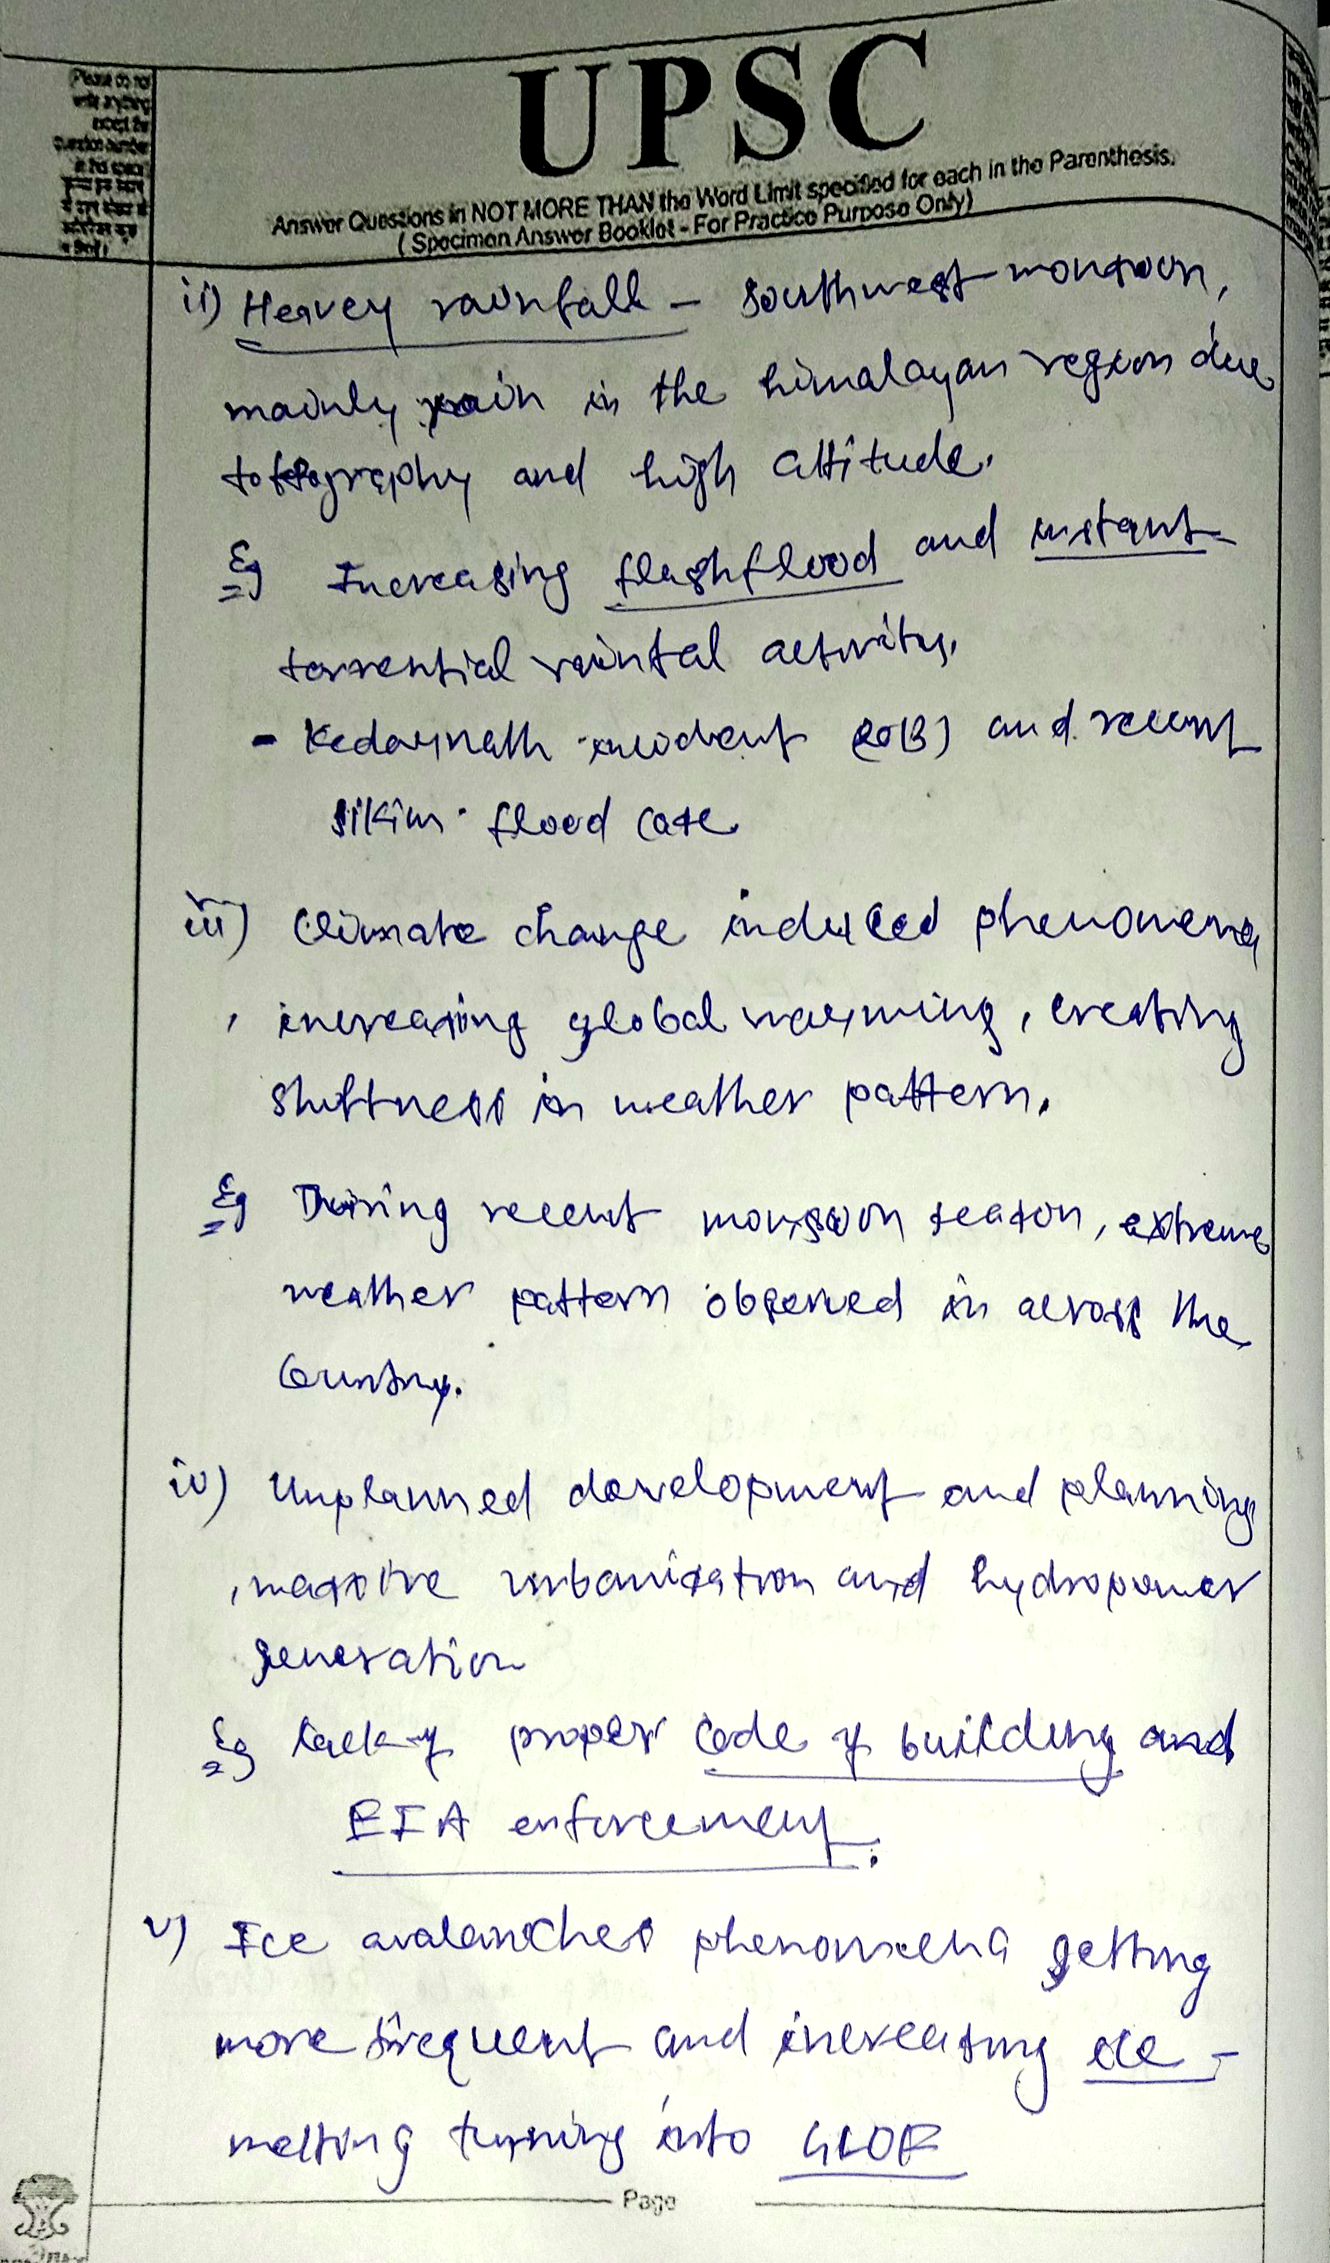 UPSC
Answer Questions in NOT MORE THAN the Word Limit specified for each in the Parenthesis.
( Specimen Answer Booklet - For Practice Purpose Only)
(Please do not
write anything
except the
question number
in this space
ii) Heavey rainfall - southwest monsoon,
mainly rain in the himalayan region due
topography and high altitude.
Eg Increasing flashflood and instant
torrential rainfal activity.
- Kedarnath incident 2013) and recent
sikim flood case
iii) Climate change induced phenomena
, increasing global warming, creating
shiftness in weather pattern.
Eg During recent monsoon season, extreme
weather pattern observed in across the
Country.
iv) Unplanned development and planning
, massive urbanization and hydropower
generation
Eg lack of proper code of building and
EIA enforcement.
v) Ice avalanches phenomena getting
more frequent and increasing ice -
melting turning into GLOF
Page